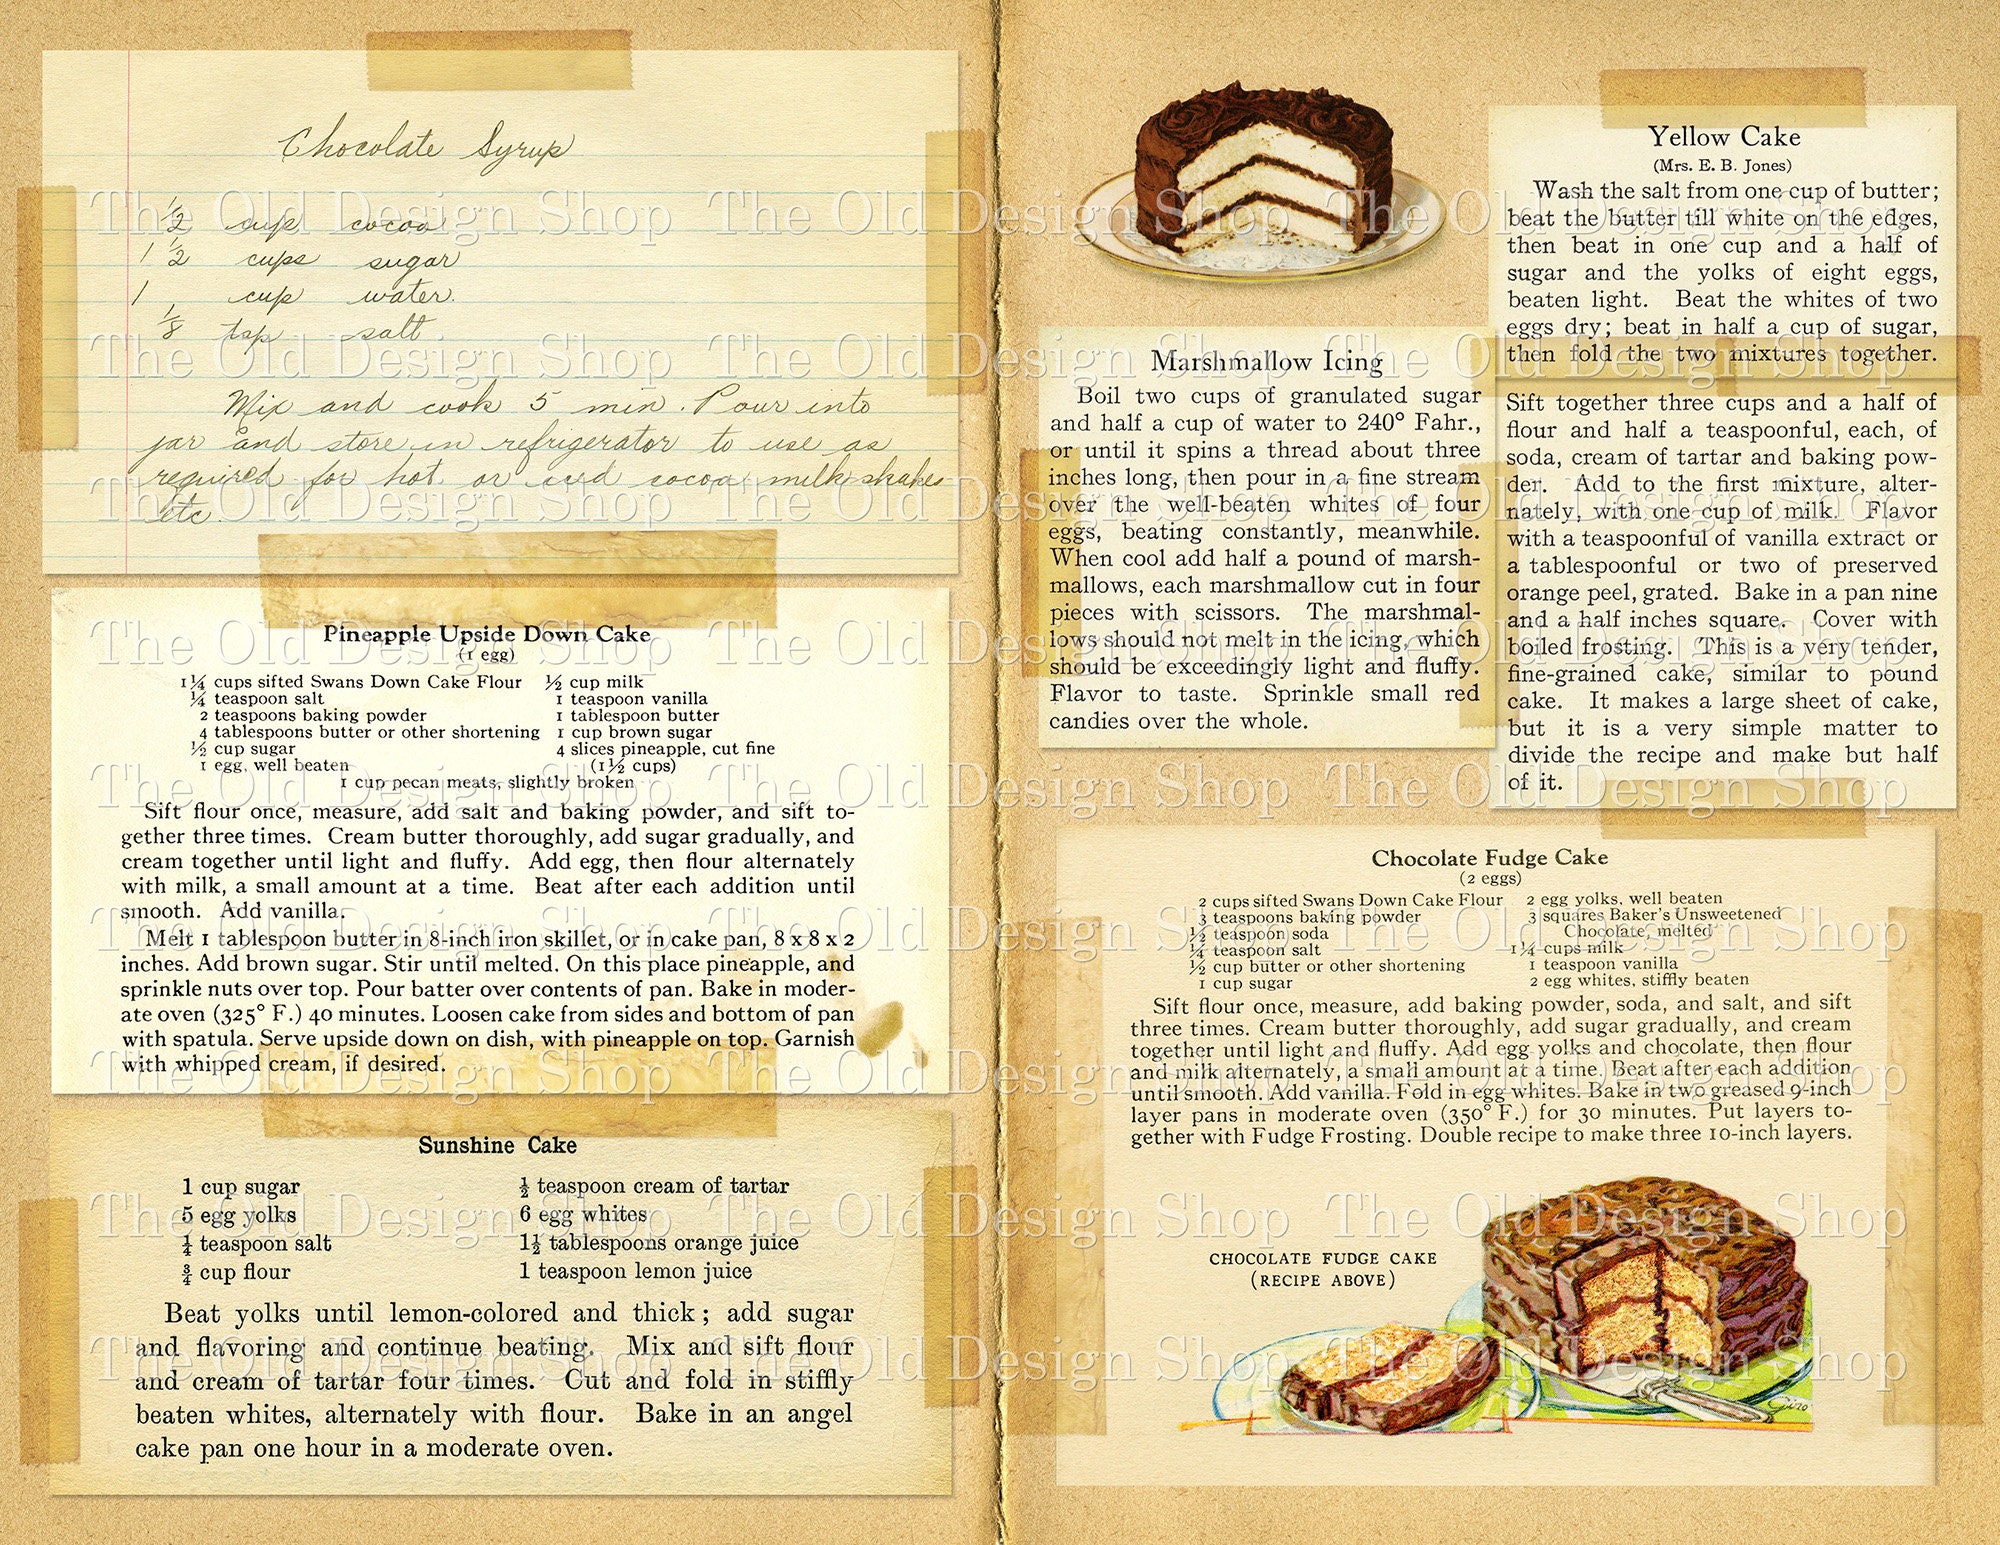 Chocolate Syrup
1/2 cup cocoa
1 1/2 cups sugar
1 cup water.
1/8 tsp salt.
Mix and cook 5 min. Pour into
jar and store in refrigerator to use as
required for hot or iced cocoa milkshakes
etc.
Pineapple Upside Down Cake
(1 egg)
1¼ cups sifted Swans Down Cake Flour
¼ teaspoon salt
2 teaspoons baking powder
4 tablespoons butter or other shortening
½ cup sugar
1 egg, well beaten
½ cup milk
1 teaspoon vanilla
1 tablespoon butter
1 cup brown sugar
4 slices pineapple, cut fine
(1½ cups)
1 cup pecan meats, slightly broken
Sift flour once, measure, add salt and baking powder, and sift to-
gether three times. Cream butter thoroughly, add sugar gradually, and
cream together until light and fluffy. Add egg, then flour alternately
with milk, a small amount at a time. Beat after each addition until
smooth. Add vanilla.
Melt 1 tablespoon butter in 8-inch iron skillet, or in cake pan, 8 x 8 x 2
inches. Add brown sugar. Stir until melted. On this place pineapple, and
sprinkle nuts over top. Pour batter over contents of pan. Bake in moder-
ate oven (325° F.) 40 minutes. Loosen cake from sides and bottom of pan
with spatula. Serve upside down on dish, with pineapple on top. Garnish
with whipped cream, if desired.
Sunshine Cake
1 cup sugar
5 egg yolks
¼ teaspoon salt
¾ cup flour
½ teaspoon cream of tartar
6 egg whites
1½ tablespoons orange juice
1 teaspoon lemon juice
Beat yolks until lemon-colored and thick; add sugar
and flavoring and continue beating. Mix and sift flour
and cream of tartar four times. Cut and fold in stiffly
beaten whites, alternately with flour. Bake in an angel
cake pan one hour in a moderate oven.
Marshmallow Icing
Boil two cups of granulated sugar
and half a cup of water to 240° Fahr.,
or until it spins a thread about three
inches long, then pour in a fine stream
over the well-beaten whites of four
eggs, beating constantly, meanwhile.
When cool add half a pound of marsh-
mallows, each marshmallow cut in four
pieces with scissors. The marshmal-
lows should not melt in the icing, which
should be exceedingly light and fluffy.
Flavor to taste. Sprinkle small red
candies over the whole.
Yellow Cake
(Mrs. E. B. Jones)
Wash the salt from one cup of butter;
beat the butter till white on the edges,
then beat in one cup and a half of
sugar and the yolks of eight eggs,
beaten light. Beat the whites of two
eggs dry; beat in half a cup of sugar,
then fold the two mixtures together.
Sift together three cups and a half of
flour and half a teaspoonful, each, of
soda, cream of tartar and baking pow-
der. Add to the first mixture, alter-
nately, with one cup of milk. Flavor
with a teaspoonful of vanilla extract or
a tablespoonful or two of preserved
orange peel, grated. Bake in a pan nine
and a half inches square. Cover with
boiled frosting. This is a very tender,
fine-grained cake, similar to pound
cake. It makes a large sheet of cake,
but it is a very simple matter to
divide the recipe and make but half
of it.
Chocolate Fudge Cake
(2 eggs)
2 cups sifted Swans Down Cake Flour
3 teaspoons baking powder
½ teaspoon soda
¼ teaspoon salt
½ cup butter or other shortening
1 cup sugar
2 egg yolks, well beaten
3 squares Baker's Unsweetened
Chocolate, melted
1¼ cups milk
1 teaspoon vanilla
2 egg whites, stiffly beaten
Sift flour once, measure, add baking powder, soda, and salt, and sift
three times. Cream butter thoroughly, add sugar gradually, and cream
together until light and fluffy. Add egg yolks and chocolate, then flour
and milk alternately, a small amount at a time. Beat after each addition
until smooth. Add vanilla. Fold in egg whites. Bake in two greased 9-inch
layer pans in moderate oven (350° F.) for 30 minutes. Put layers to-
gether with Fudge Frosting. Double recipe to make three 10-inch layers.
CHOCOLATE FUDGE CAKE
(RECIPE ABOVE)
Giro
The Old Design Shop The Old Design Shop The Old Design Shop
The Old Design Shop The Old Design Shop The Old Design Shop
The Old Design Shop The Old Design Shop The Old Design Shop
The Old Design Shop The Old Design Shop The Old Design Shop
The Old Design Shop The Old Design Shop The Old Design Shop
The Old Design Shop The Old Design Shop The Old Design Shop
The Old Design Shop The Old Design Shop The Old Design Shop
The Old Design Shop The Old Design Shop The Old Design Shop
The Old Design Shop The Old Design Shop The Old Design Shop